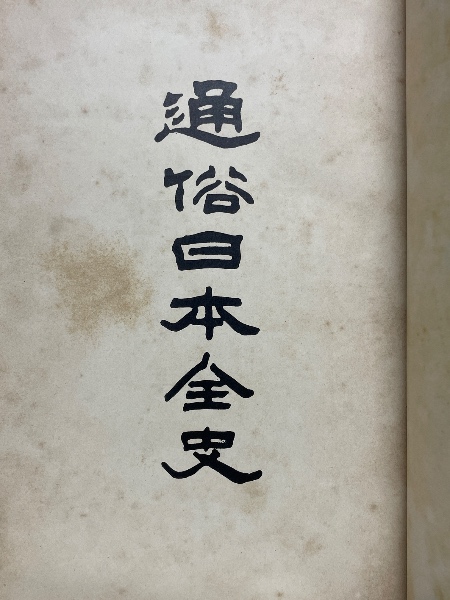 通俗日本全史